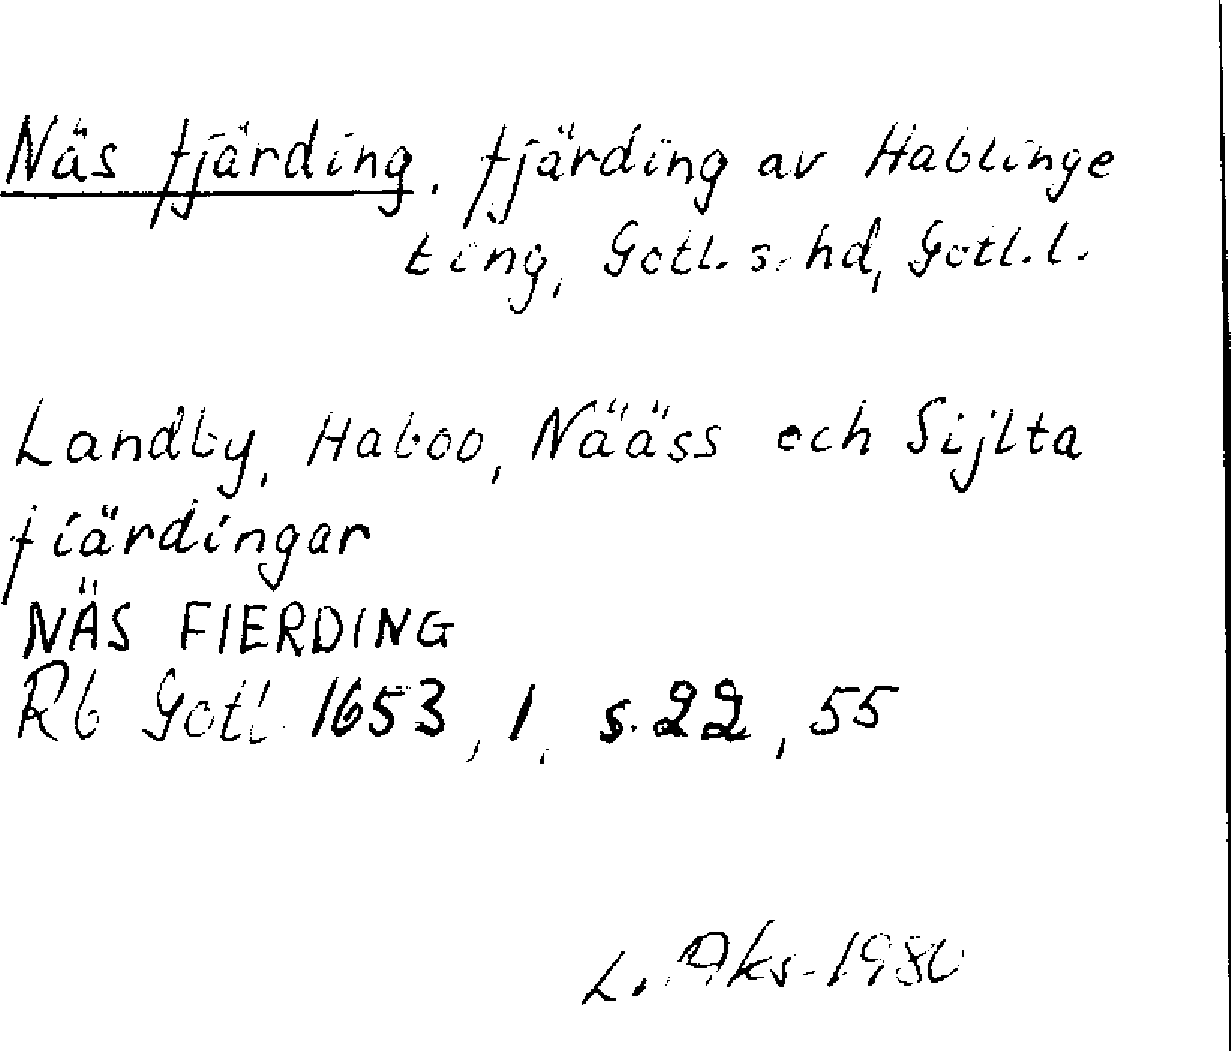 Näs fjärding. fjärding av Hablinge
ting, Gotl. s. hd, Gotl. l.
Landby, Haboo, Nääss och Sijlta
fiärdingar
NÄS FIERDING
Rb Gotl. 1653, 1, s. 22, 55
L. Aks. 1980